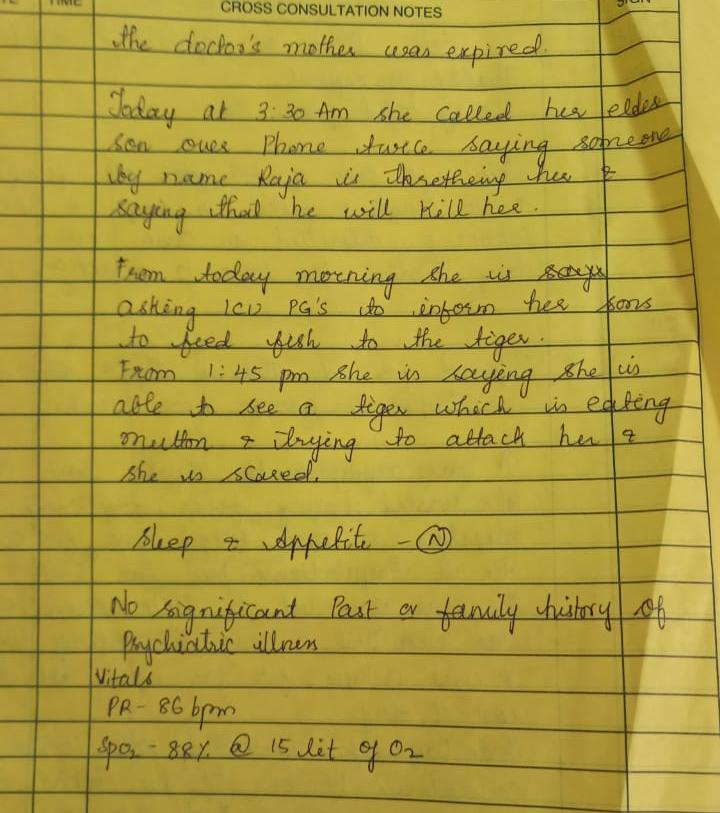 TIME
CROSS CONSULTATION NOTES
SIGN
the doctor's mother was expired.
Today at 3:30 Am she called her elder
son over Phone twice saying someone
by name Raja is thretheing her &
saying that he will kill her.
From today morning she is says
asking ICU PG's to inform her sons
to feed fish to the tiger.
From 1:45 pm she is saying she is
able to see a tiger which is eating
mutton & trying to attack her &
she is scared.
Sleep & Appetite - (N)
No significant Past or family history of
Psychiatric illness
Vitals
PR - 86 bpm
SpO2 - 88% @ 15 lit of O2